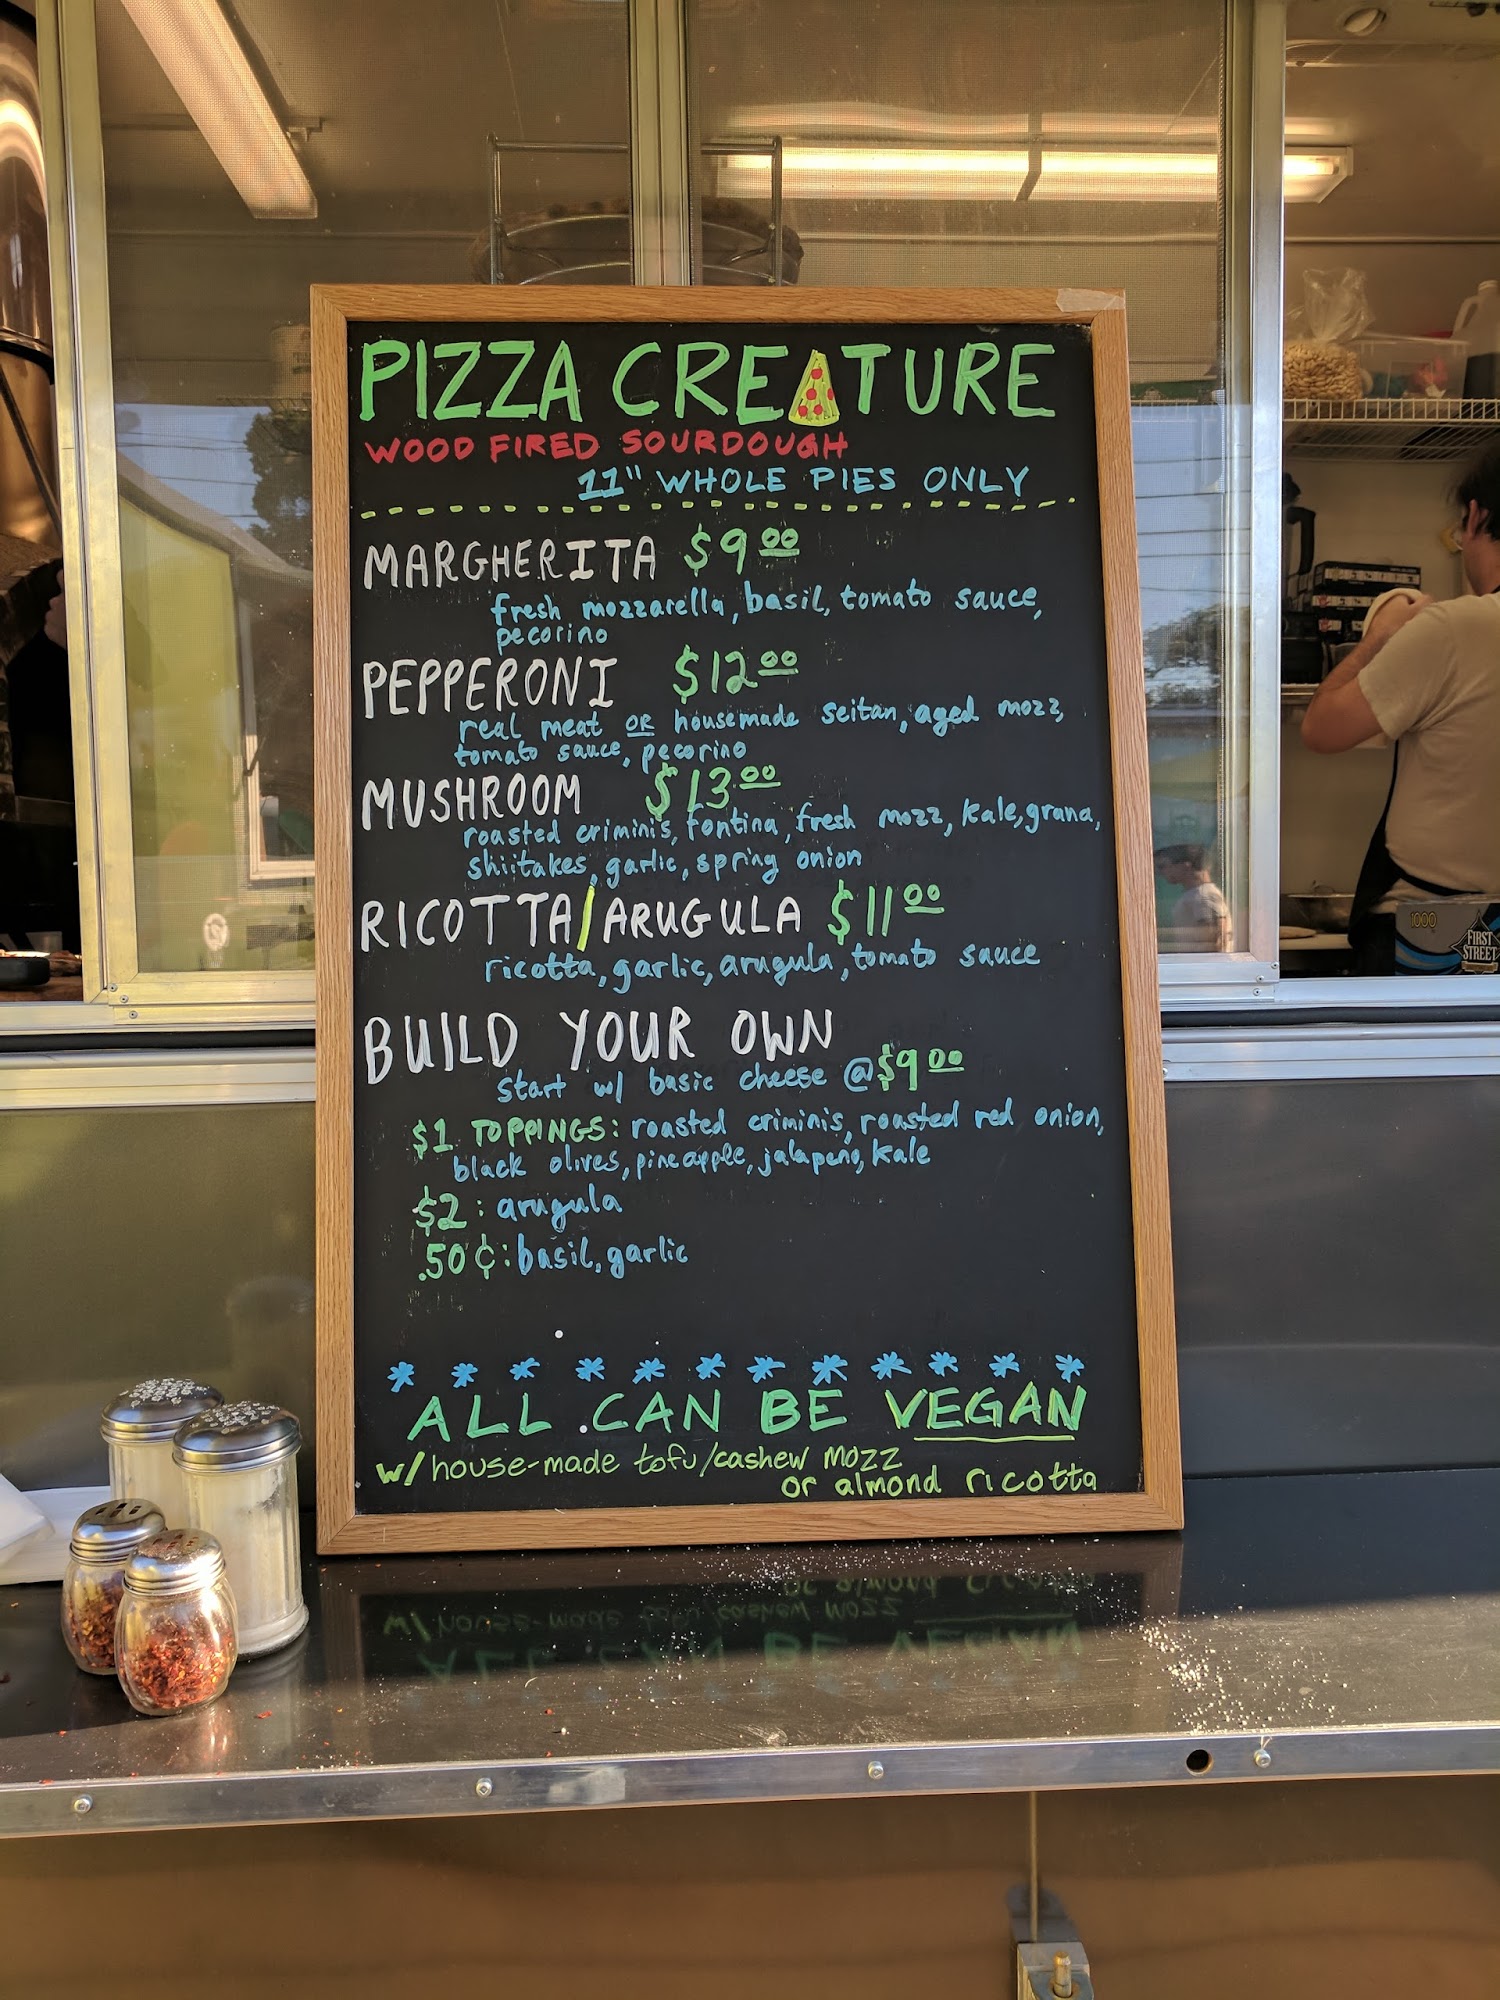 PIZZA CREATURE
WOOD FIRED SOURDOUGH
11" WHOLE PIES ONLY
MARGHERITA $9.00
fresh mozzarella, basil, tomato sauce,
pecorino
PEPPERONI $12.00
real meat OR housemade seitan, aged mozz,
tomato sauce, pecorino
MUSHROOM $13.00
roasted criminis, fontina, fresh mozz, kale, grana,
shiitakes, garlic, spring onion
RICOTTA/ARUGULA $11.00
ricotta, garlic, arugula, tomato sauce
BUILD YOUR OWN
start w/ basic cheese @ $9.00
$1 TOPPINGS: roasted criminis, roasted red onion,
black olives, pineapple, jalapeño, kale
$2: arugula
.50¢: basil, garlic
ALL CAN BE VEGAN
w/ house-made tofu/cashew mozz
or almond ricotta
1000
FIRST
STREET